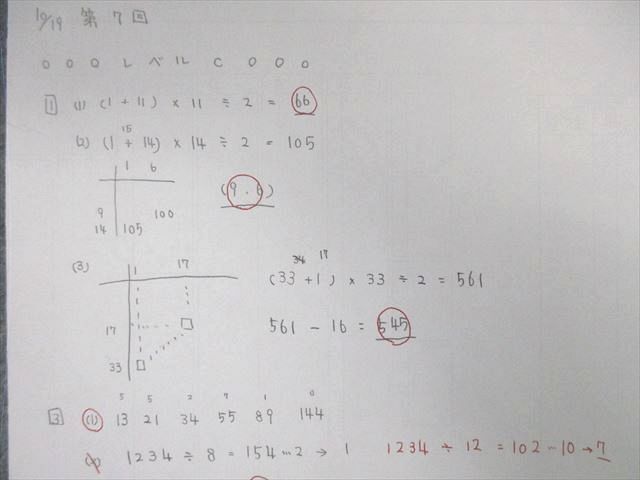 10/19 第7回
000レベルC000
1 (1) (1+11)×11÷2=66
15
(2) (1+14)×14÷2=105
1 6
(9.6)
9 100
14 105
34 17
(3) 1 17 (33+1)×33÷2=561
17 561-16=545
33
5 5 2 7 1 0
3 (1) 13 21 34 55 89 144
1234÷8=154…2→1 1234÷12=102…10→7